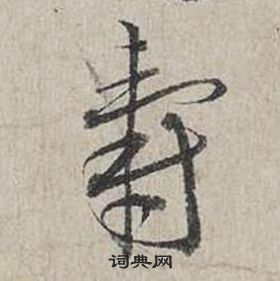 壽
词典网